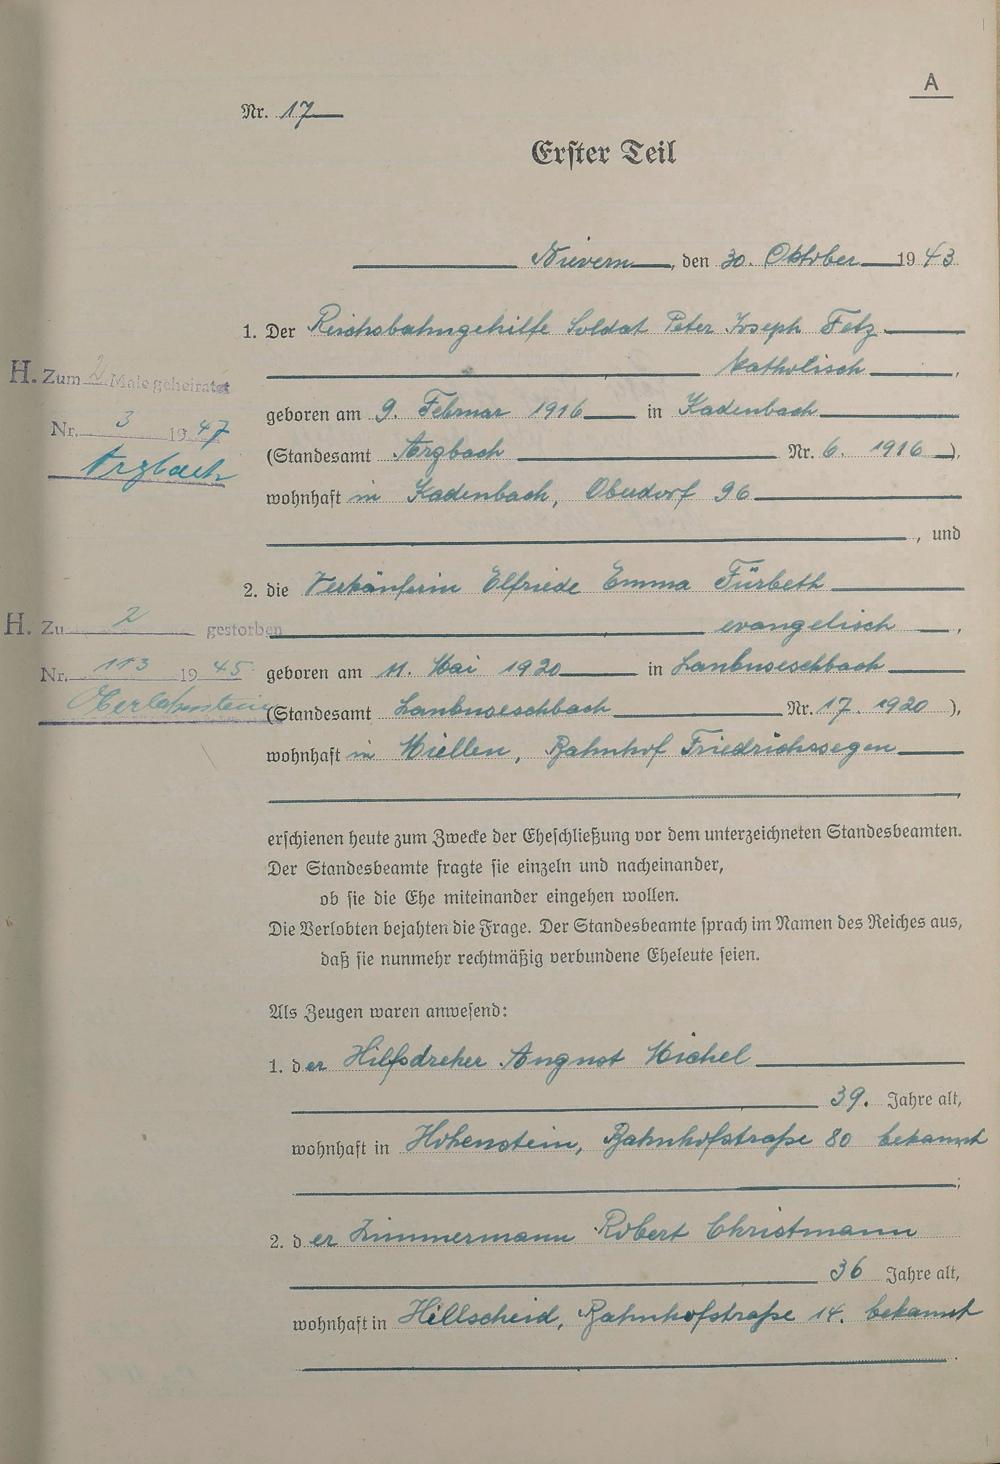 A
Nr. 17
Erster Teil
Nievern, den 30. Oktober 1943
1. Der Reichsbahngehilfe Soldat Peter Joseph Fetz
katholisch,
H. Zum 2 Male geheiratet
geboren am 9. Februar 1916 in Kadenbach
Nr. 3 1947
(Standesamt Arzbach Nr. 6. 1916),
Arzbach
wohnhaft in Kadenbach, Oberdorf 96
, und
2. die Verkäuferin Elfriede Emma Fürbeth
H. Zu 2 gestorben
evangelisch,
Nr. 113 1945
geboren am 11. Mai 1920 in Laubuseschbach
Oberlahnstein
(Standesamt Laubuseschbach Nr. 17. 1920),
wohnhaft in Miellen, Bahnhof Friedrichssegen
,
erschienen heute zum Zwecke der Eheschließung vor dem unterzeichneten Standesbeamten.
Der Standesbeamte fragte sie einzeln und nacheinander,
ob sie die Ehe miteinander eingehen wollen.
Die Verlobten bejahten die Frage. Der Standesbeamte sprach im Namen des Reiches aus,
daß sie nunmehr rechtmäßig verbundene Eheleute seien.
Als Zeugen waren anwesend:
1. der Hilfsdreher August Michel
39. Jahre alt,
wohnhaft in Hohenstein, Bahnhofstraße 80 bekannt
;
2. der Zimmermann Robert Christmann
36 Jahre alt,
wohnhaft in Hillscheid, Bahnhofstraße 14. bekannt
.